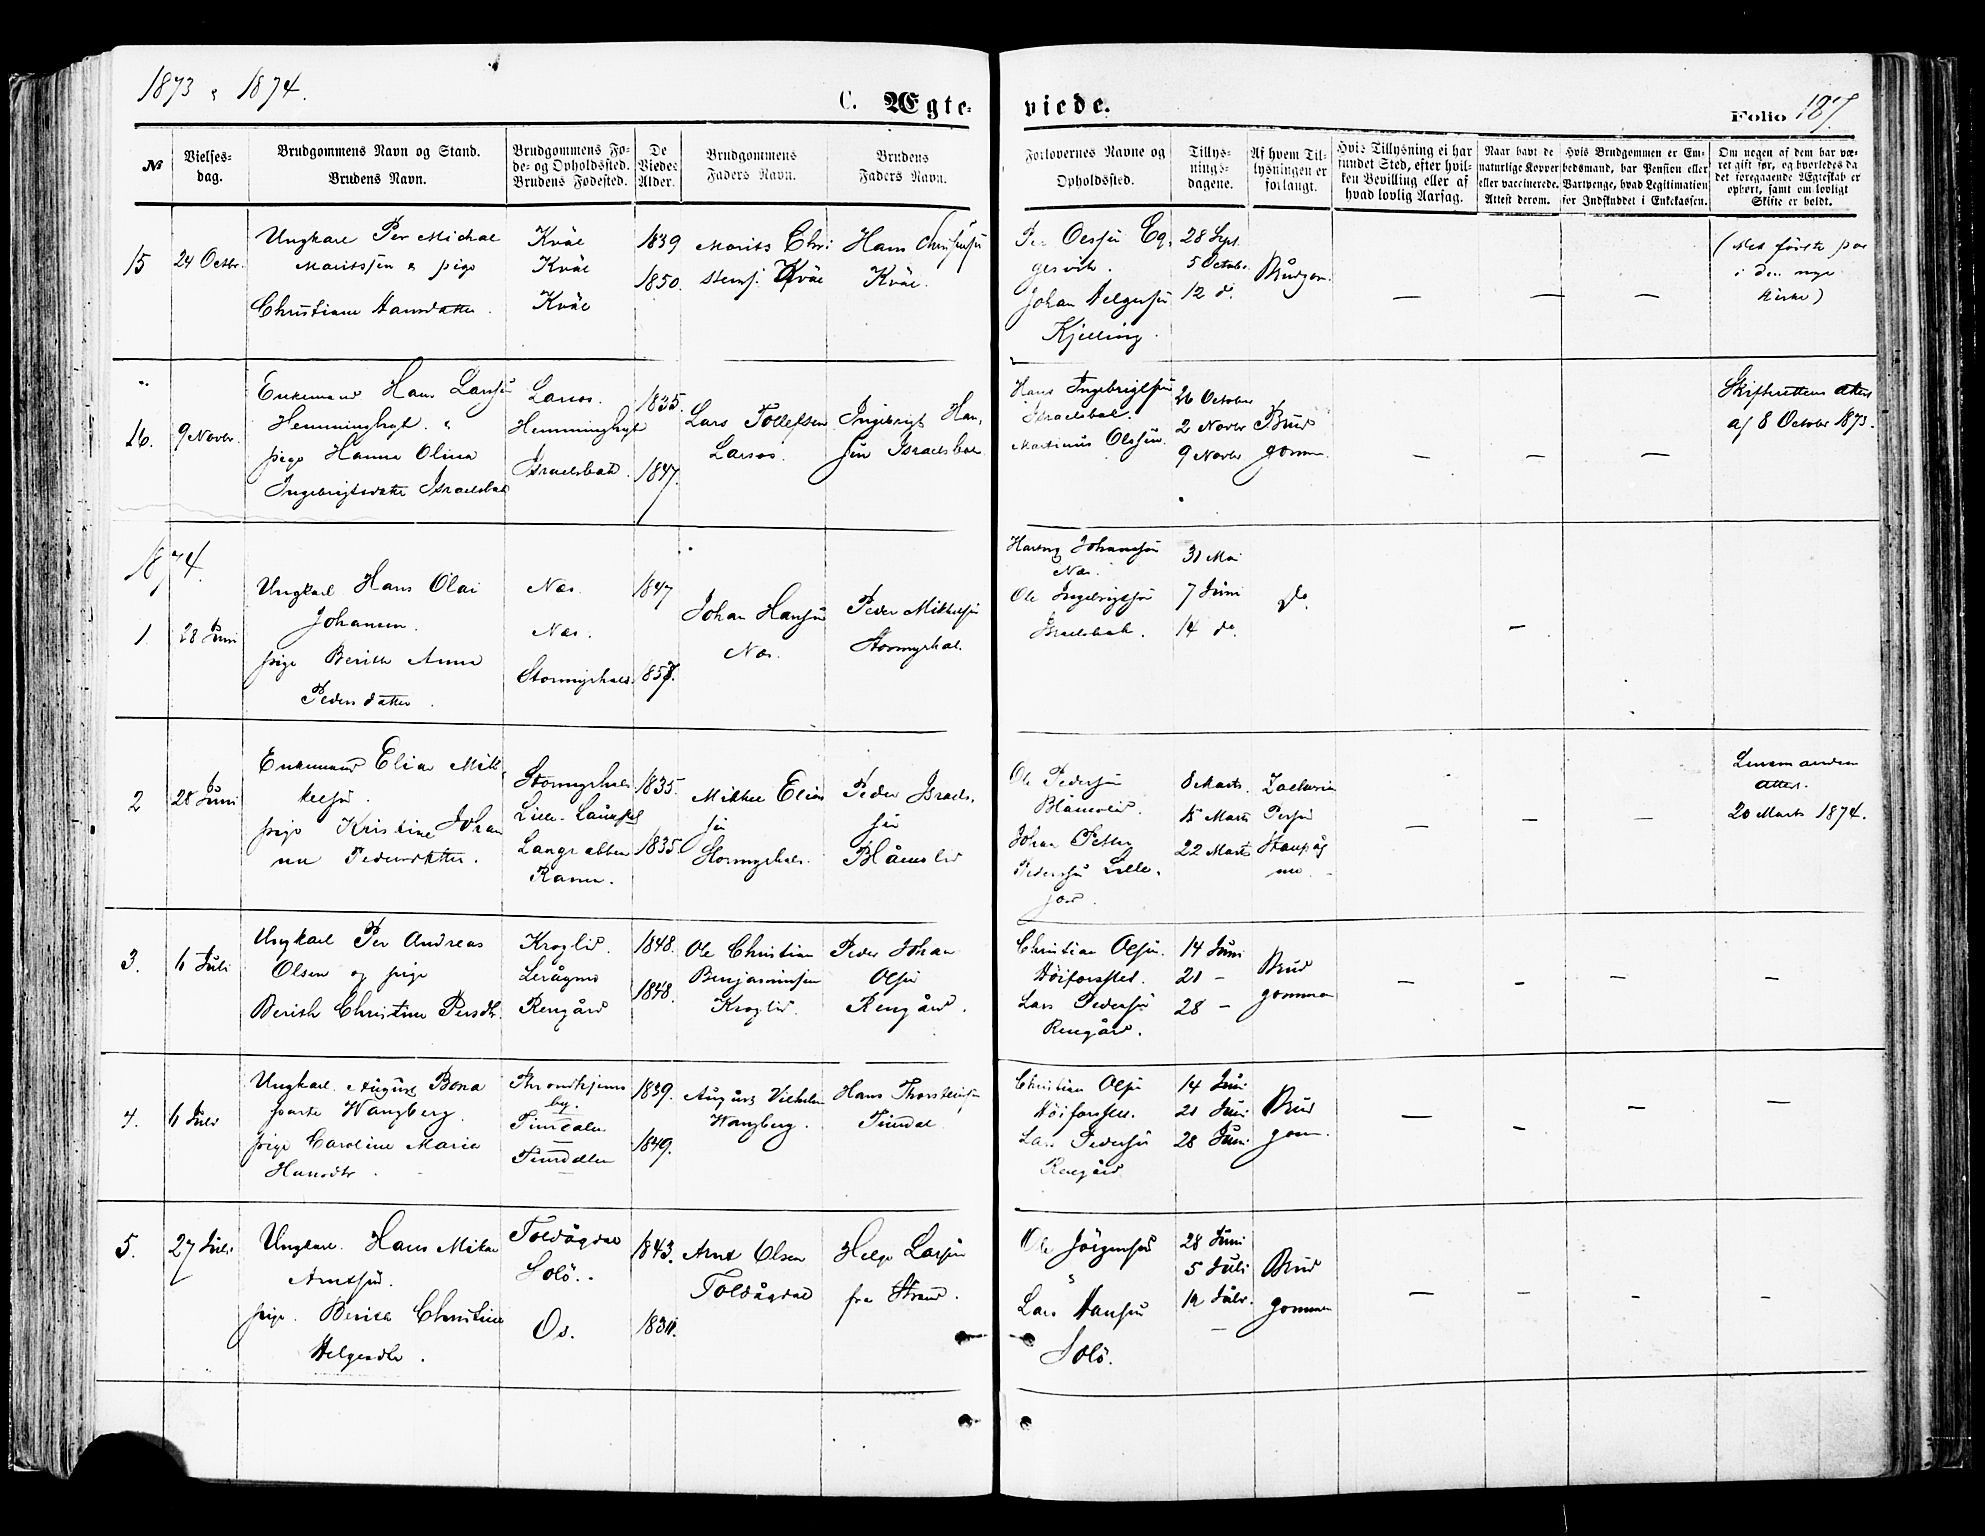 1873 & 1874.
C. Ægte-
viede.
Folio 187.
№
Vielses-
dag.
Brudgommens Navn og Stand.
Brudens Navn.
Brudgommens Fø-
de- og Opholdssted.
Brudens Fødested.
De
Viedes
Alder.
Brudgommens
Faders Navn.
Brudens
Faders Navn.
Forlovernes Navne og
Opholdssted.
Tillys-
nings-
dagene.
Af hvem Til-
lysningen er
forlangt.
Hvis Tillysning ei har
fundet Sted, efter hvil-
ken Bevilling eller af
hvad lovlig Aarsag.
Naar havt de
naturlige Kopper
eller vaccinerede.
Attest derom.
Hvis Brudgommen er Em-
bedsmand, har Pension eller
Vartpenge, hvad Legitimation
for Indskuddet i Enkekassen.
Om nogen af dem har væ-
ret gift før, og hvorledes da
det foregaaende Ægteskab er
ophørt, samt om lovligt
Skifte er holdt.
15
24 Octbr.
Ungkarl Per Michal
Moritssen & pige
Christiane Hansdatter.
Kväe
Kväe
Kväe
1839
1850.
Morits Chri
stens. Kväe
Hans Christensen
Kväe.
Per Oessen Eg-
gesvik.
Johan Helgesen
Kjelling.
28 Sept.
5 Octobr.
12 d.
Brudgom.
— — —
(Det første par
i den nye
Kirke)
16.
9 Novbr.
Enkemand Hans Larsen
Hemminghyt. &
pige Hanna Olina
Ingebrigtsdatter Israelsbak
Larsos.
Hemminghyt
Israelsbak.
1835.
1847.
Lars Tollefsen
Larsos.
Ingebrigt Han-
sen Israelsbak.
Hans Ingebrigtsen
Israelsbak.
Martinus Olssen.
26 October
2 Novbr
9 Novbr
Brud
gomm.
— — —
Skifterettens Attest
af 8 October 1873.
1874.
1.
28 Juni
Ungkarl Hans Olai
Johansen.
pige Berith Anna
Pedersdatter.
Næs.
Næs.
Stormyrhals.
1847
1857.
Johan Hansen
Næs.
Peder Mikkelsen
Stormyrhals.
Johansen
Næs.
Ole Ingebrigtsen
Israelsbak.
31 Mai
7 Juni
14 do.
Do.
—
2
28 Juni
Enkemand Elias Mik
kelsen.
pige Kristine Johan
na Pedersdatter.
Stormyrhals
Lille-
Ranen.
1835.
1835.
Mikkel Elias
sen
Stormyrhals.
Peder Israels-
sen
Blåmoli
Ole Pedersen
Blåmoli.
Johan Peter
Pedersen Lille-
jord.
8 Marts.
15 Marts
22 Marts
Zacharias
Persen
— — —
Lensmandens
Attest.
20 Marts 1874.
3.
6 Juli
Ungkarl Per Andreas
Olsen og pige
Berith Christine Persdtr.
Kroglid.
Leràgmo
Rengård
1848.
1848.
Ole Christian
Benjaminsen
Kroglid.
Peder Johan
Olsen
Rengård.
Christian Olsen.
Höiforssted.
Lars Pedersen
Rengård.
14 Juni
21 —
28 —
Brud
gommen
— — — —
4.
6 Juli
Ungkarl August Bona
parte Wangberg.
pige Caroline Maria
Hansdtr.
Throndhjems
by.
1839.
1849.
August Vilhelm
Wangberg.
Hans Thorsteinsen
Christian Olsen
Höiforssted.
Lars Pedersen
Rengård
14 Juni
21 Juni
28 Juni
Brud
gom.
— — — —
5.
27 Juli
Ungkarl. Hans Mikal
Arntsen.
pige. Berith Christine
Helgesdtr.
Toldågdal
Solö.
Os.
1843.
Arnt Olsen
Toldågdal
Helge Larsen
fra Strand.
Ole Jörgensen
"
Lars Hansen
Solö.
28 Juni
5 Juli
12 Juli.
Brud
gommen
— — — —